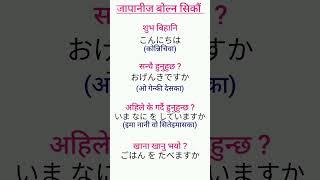 जापानीज बोल्न सिकौं
शुभ बिहानि
こんにちは
(कोन्निचिवा)
सन्चै हुनुहुन्छ ?
おげんきですか
(ओ गेन्की देसका)
अहिले के गर्दै हुनुहुन्छ ?
いま なに を していますか
(इमा नानी वो सितेइमासका)
खाना खानु भयो ?
ごはん を たべますか